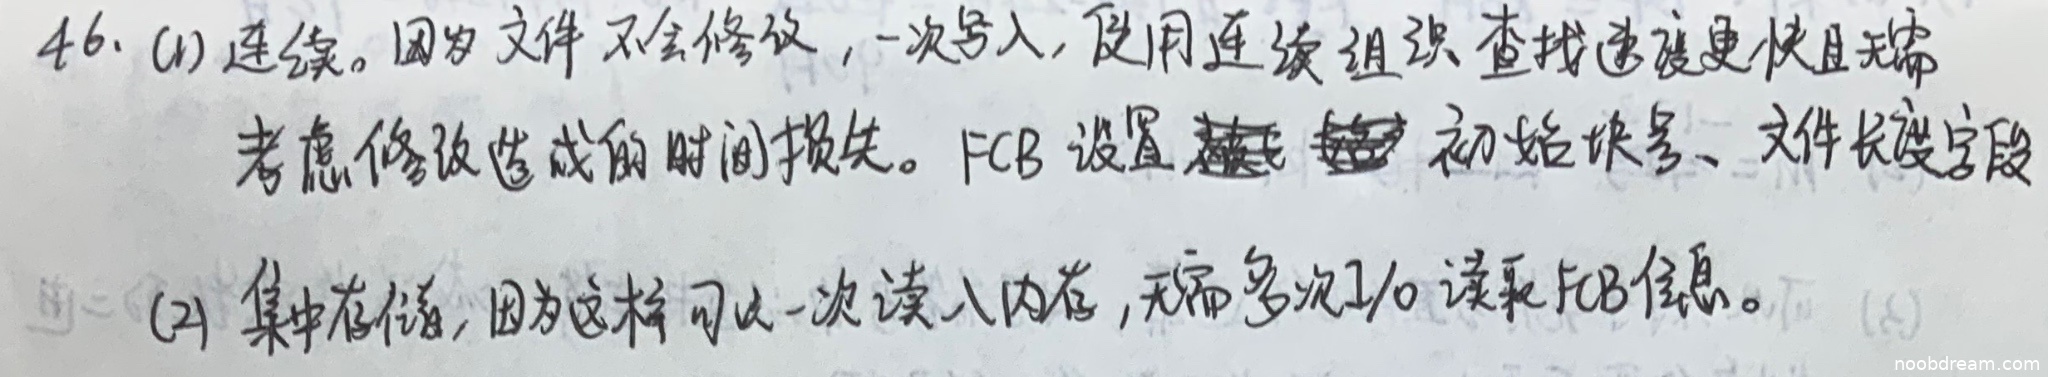 46. (1) 连续。因为文件不会修改，一次写入，使用连续组织查找速度更快且无需
考虑修改造成的时间损失。FCB 设置 初始块号、文件长度字段
(2) 集中存储，因为这样可以一次读入内存，无需多次I/O 读取FCB信息。
noobdream.com